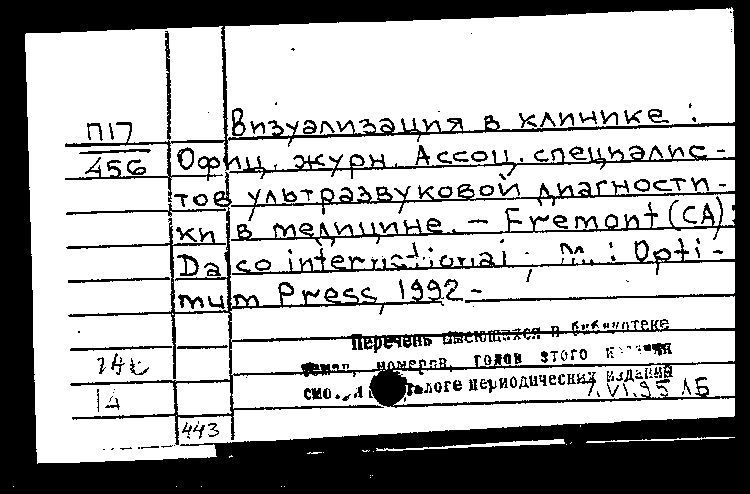 П17
456
Визуализация в клинике :
Офиц. журн. Ассоц. специалис-
тов ультразвуковой диагности-
ки в медицине. – Fremont (CA) :
Dasco international ; М. : Opti-
mum Press, 1992 –
Перечень имеющихся в библиотеке
томов, номеров, годов этого издания
смо. каталоге периодических изданий
1.VI.95 ЛБ
14
443